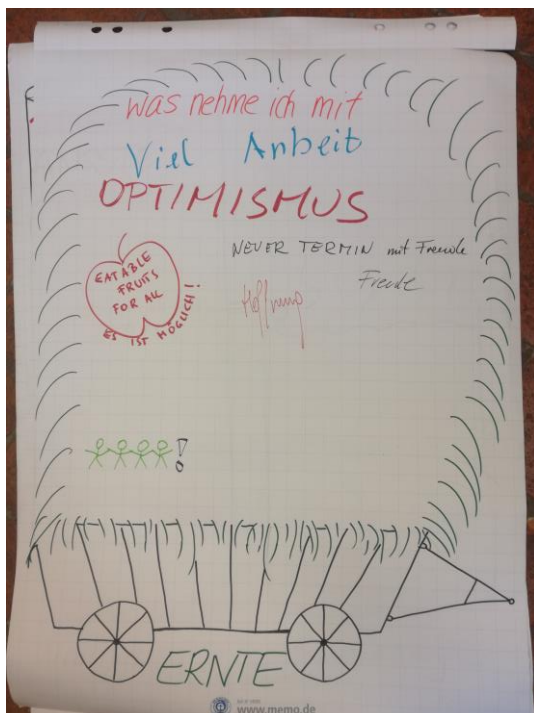 Was nehme ich mit
Viel Arbeit
OPTIMISMUS
NEUER TERMIN mit Freude
Freude
Hoffnung
EATABLE
FRUITS
FOR ALL
ES IST MÖGLICH!
!
ERNTE
www.memo.de